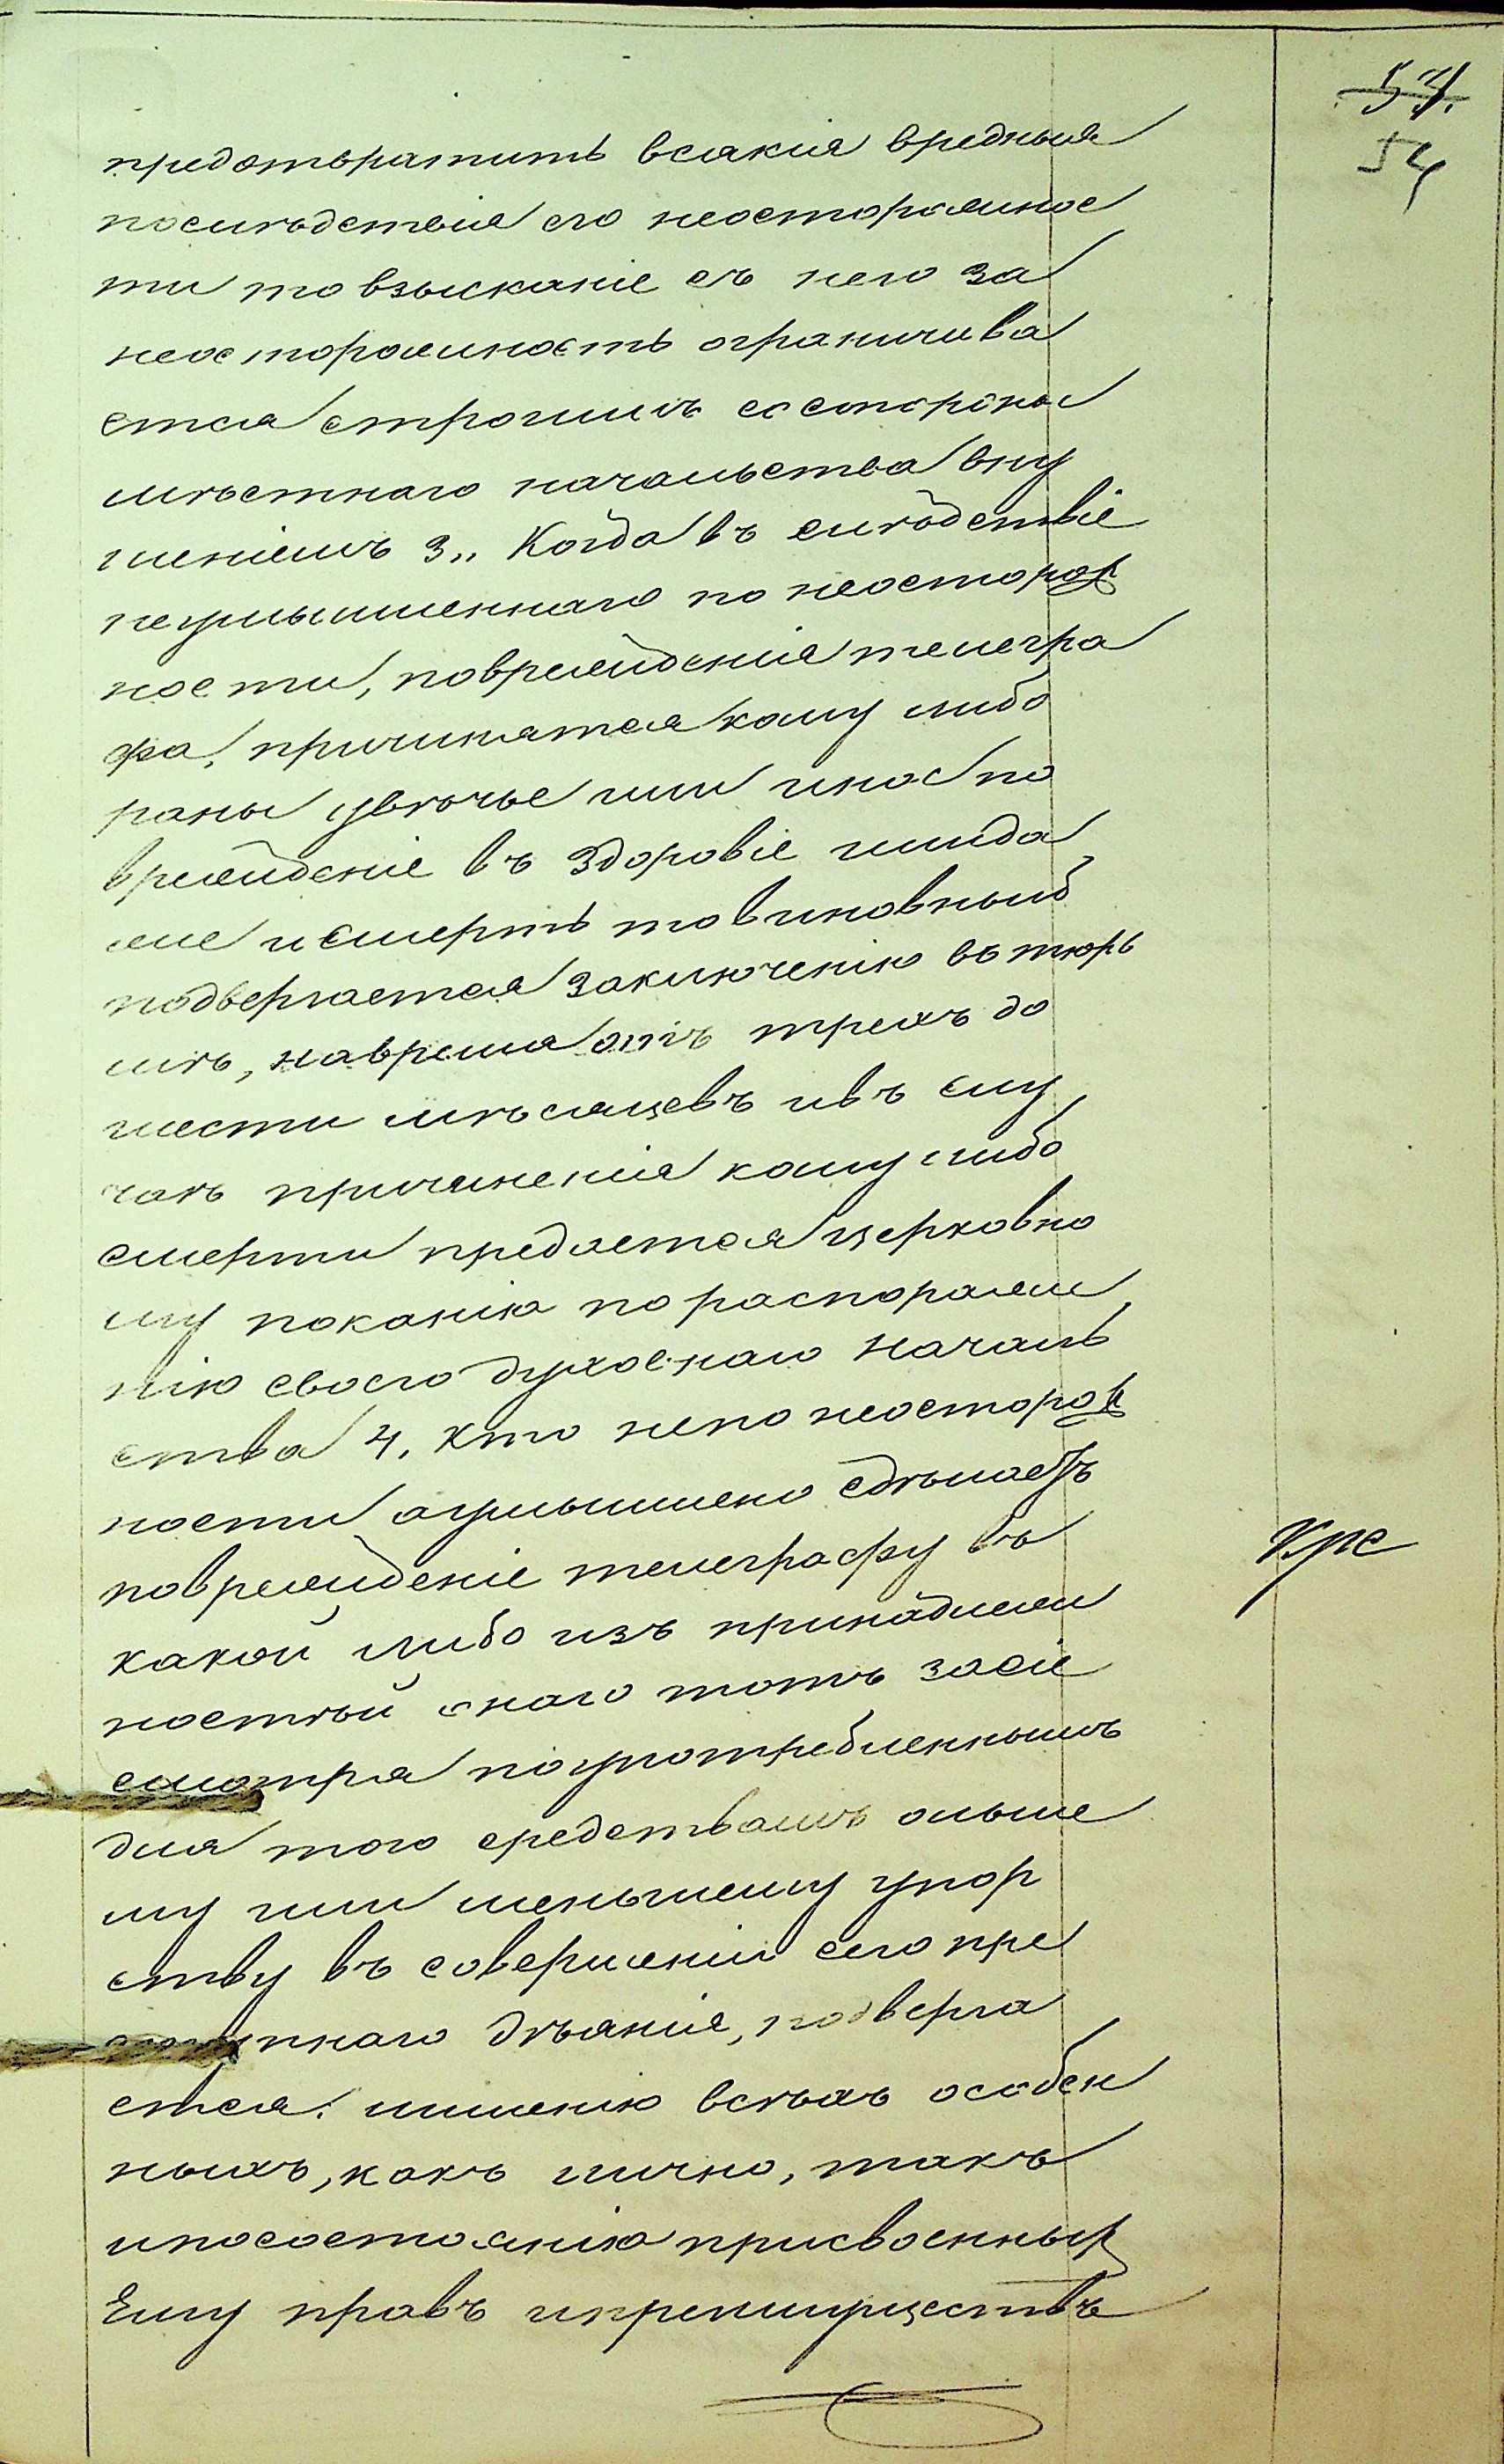 53.
54
предотвратить всякія вредныя
послѣдствія его неосторожнос
ти то взысканіе съ него за
неосторожность ограничива
ется строгимъ со стороны
мѣстнаго начальства вну
шеніемъ 3„ Когда въ слѣдствіе
неумышленнаго по неосторож
ности, поврежденія телегра
фа, причинятся кому либо
раны увѣчье или иное по
врежденіе въ здоровіе или да
же и смерть то виновный
подвергается заключенію въ тюрь
мѣ, на время отъ трехъ до
шести мѣсяцевъ и въ слу
чаѣ причиненія кому либо
смерти предается церковно
му покаянію по распоряже
нію своего духовнаго началь
ства 4. Кто не по неосторож
ности а умышлено сдѣлаетъ
поврежденіе телеграфу въ
какой либо изъ принадлеж
ностей онаго тотъ за сіе
смотря по употребленнымъ
для того средствамъ ольше
му или меньшему упор
ству въ совершеніи сего пре
ступнаго дѣянія, подверга
ется: лишенію всѣхъ особен
ныхъ, какъ лично, такъ
и по состоянію присвоенных
Ему правъ и преимуществъ
Кре